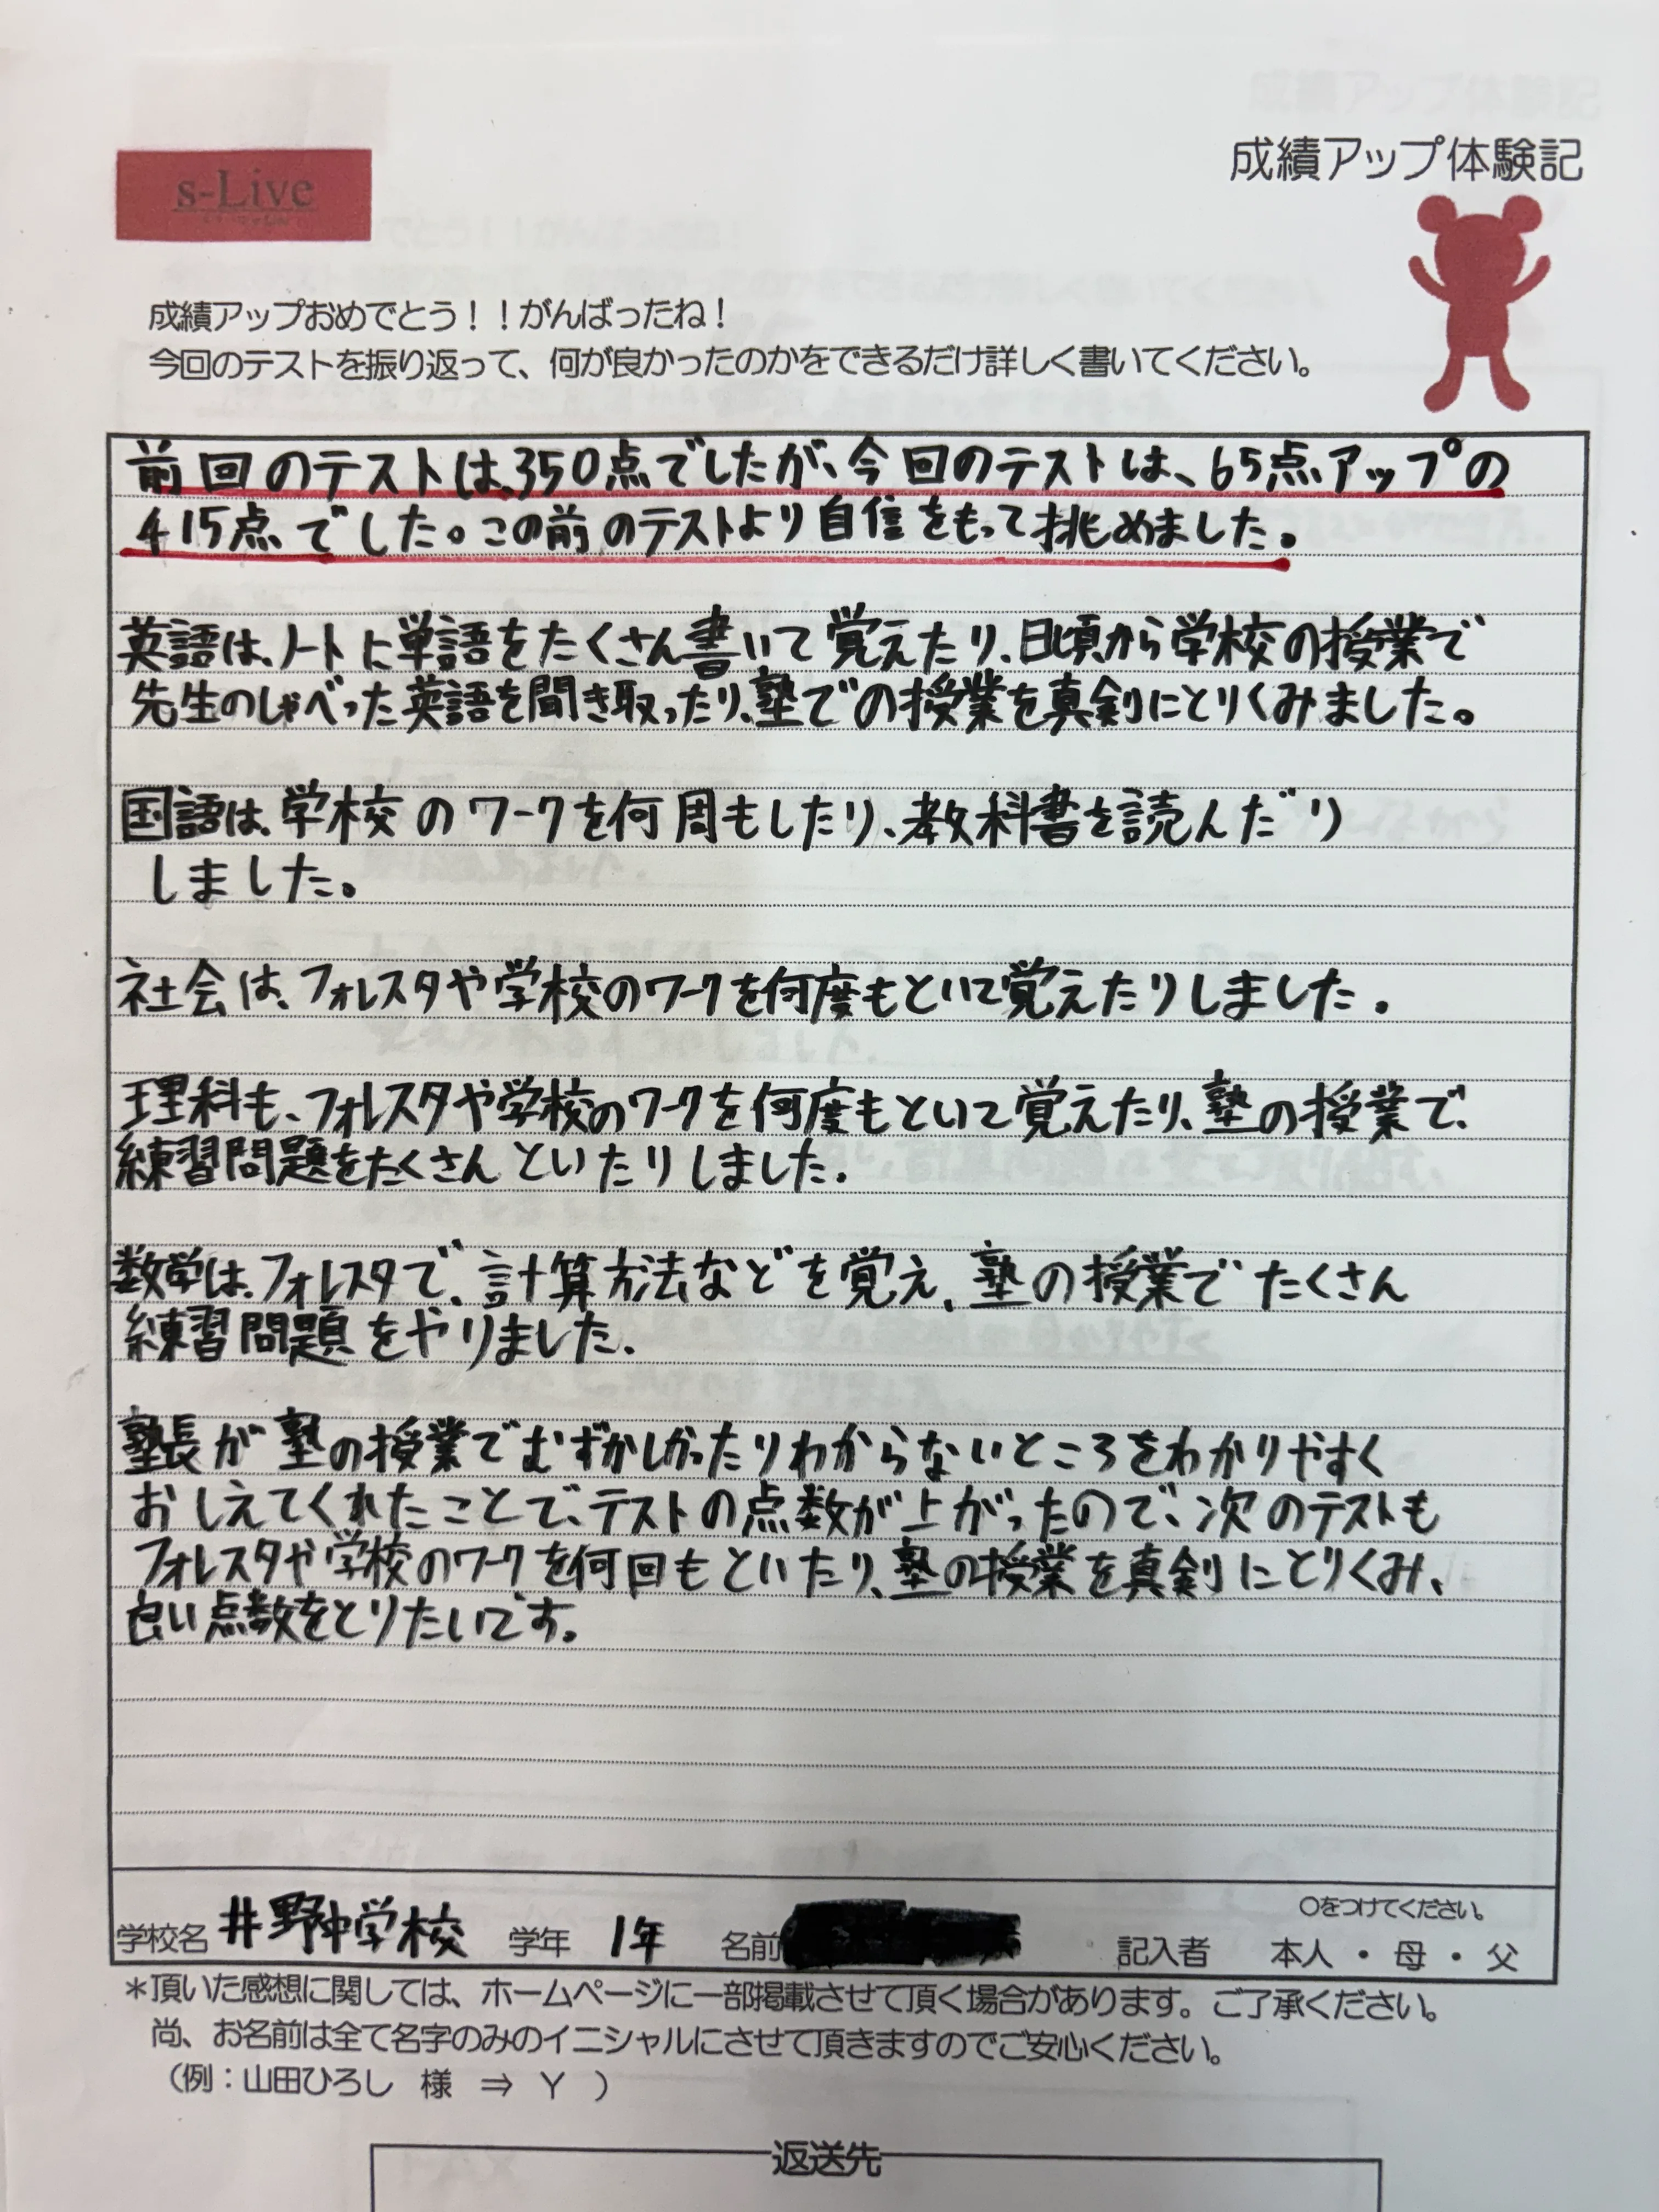 成績アップ体験記
s-Live
成績アップおめでとう！！がんばったね！
今回のテストを振り返って、何が良かったのかをできるだけ詳しく書いてください。
前回のテストは、350点でしたが、今回のテストは、65点アップの
415点でした。この前のテストより自信をもって挑めました。
英語は、ノートに単語をたくさん書いて覚えたり、日頃から学校の授業で
先生のしゃべった英語を聞き取ったり、塾での授業を真剣にとりくみました。
国語は、学校のワークを何周もしたり、教科書を読んだり
しました。
社会は、フォレスタや学校のワークを何度もといて覚えたりしました。
理科も、フォレスタや学校のワークを何度もといて覚えたり、塾の授業で、
練習問題をたくさんといたりしました。
数学は、フォレスタで、計算方法などを覚え、塾の授業でたくさん
練習問題をやりました。
塾長が塾の授業でむずかしかったりわからないところをわかりやすく
おしえてくれたことで、テストの点数が上がったので、次のテストも
フォレスタや学校のワークを何回もといたり、塾の授業を真剣にとりくみ、
良い点数をとりたいです。
○をつけてください。
学校名 井野中学校 学年 1年 名前 記入者 本人・母・父
＊頂いた感想に関しては、ホームページに一部掲載させて頂く場合があります。ご了承ください。
尚、お名前は全て名字のみのイニシャルにさせて頂きますのでご安心ください。
（例：山田ひろし 様 ⇒ Y ）
返送先